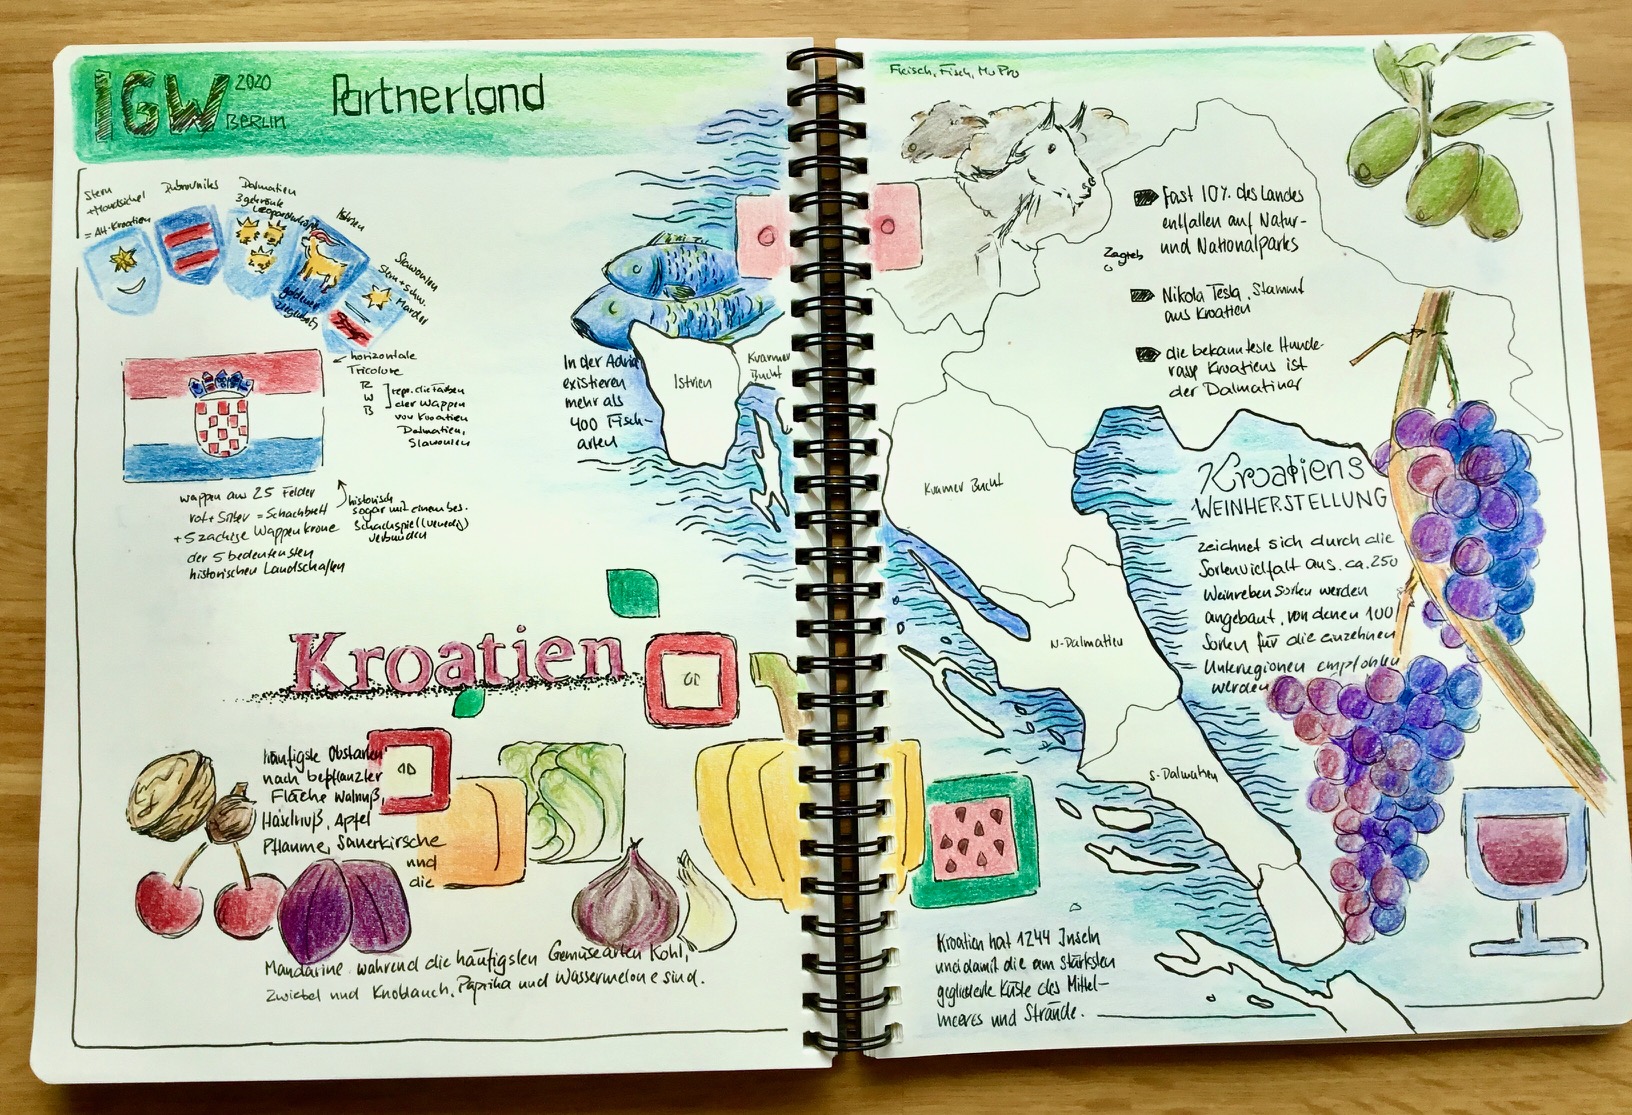 IGW 2020
BERLIN
Partnerland
Stern
+Mondsichel
= Alt-Kroatien
Dubrovniks
Dalmatien
3 gekrönte
Leopardenköpfe
Istrien
goldene
Ziegenbock
Slawonien
Stern + schw.
Marder
← horizontale
Tricolore
R
W
B
repr. die Farben
der Wappen
von Kroatien
Dalmatien,
Slawonien
Wappen aus 25 Felder
rot + Silber = Schachbrett
+ 5 zackige Wappenkrone
der 5 bedeutensten
historischen Landschaften
historisch
sogar mit einem bes.
Schachspiel (Venedig)
verbunden
In der Adria
existieren
mehr als
400 Fisch-
arten
Istrien
Kvarner
Bucht
Kroatien
häufigste Obstarten
nach bepflanzter
Fläche Walnuß,
Haselnuß, Apfel
Pflaume, Sauerkirsche
und
die
Mandarine während die häufigsten Gemüsearten Kohl,
Zwiebel und Knoblauch, Paprika und Wassermelone sind.
Fleisch, Fisch, MoPro
Zagreb
Fast 10% des Landes
entfallen auf Natur-
und Nationalparks
Nikola Tesla, stammt
aus Kroatien
die bekannteste Hunde-
rasse Kroatiens ist
der Dalmatiner
Kvarner Bucht
N-Dalmatien
S-Dalmatien
Kroatiens
WEINHERSTELLUNG
zeichnet sich durch die
Sortenvielfalt aus. ca. 250
Weinreben Sorten werden
angebaut, von denen 100
Sorten für die einzelnen
Unterregionen empfohlen
werden
Kroatien hat 1244 Inseln
und damit die am stärksten
gegliederte Küste des Mittel-
meeres und Strände.